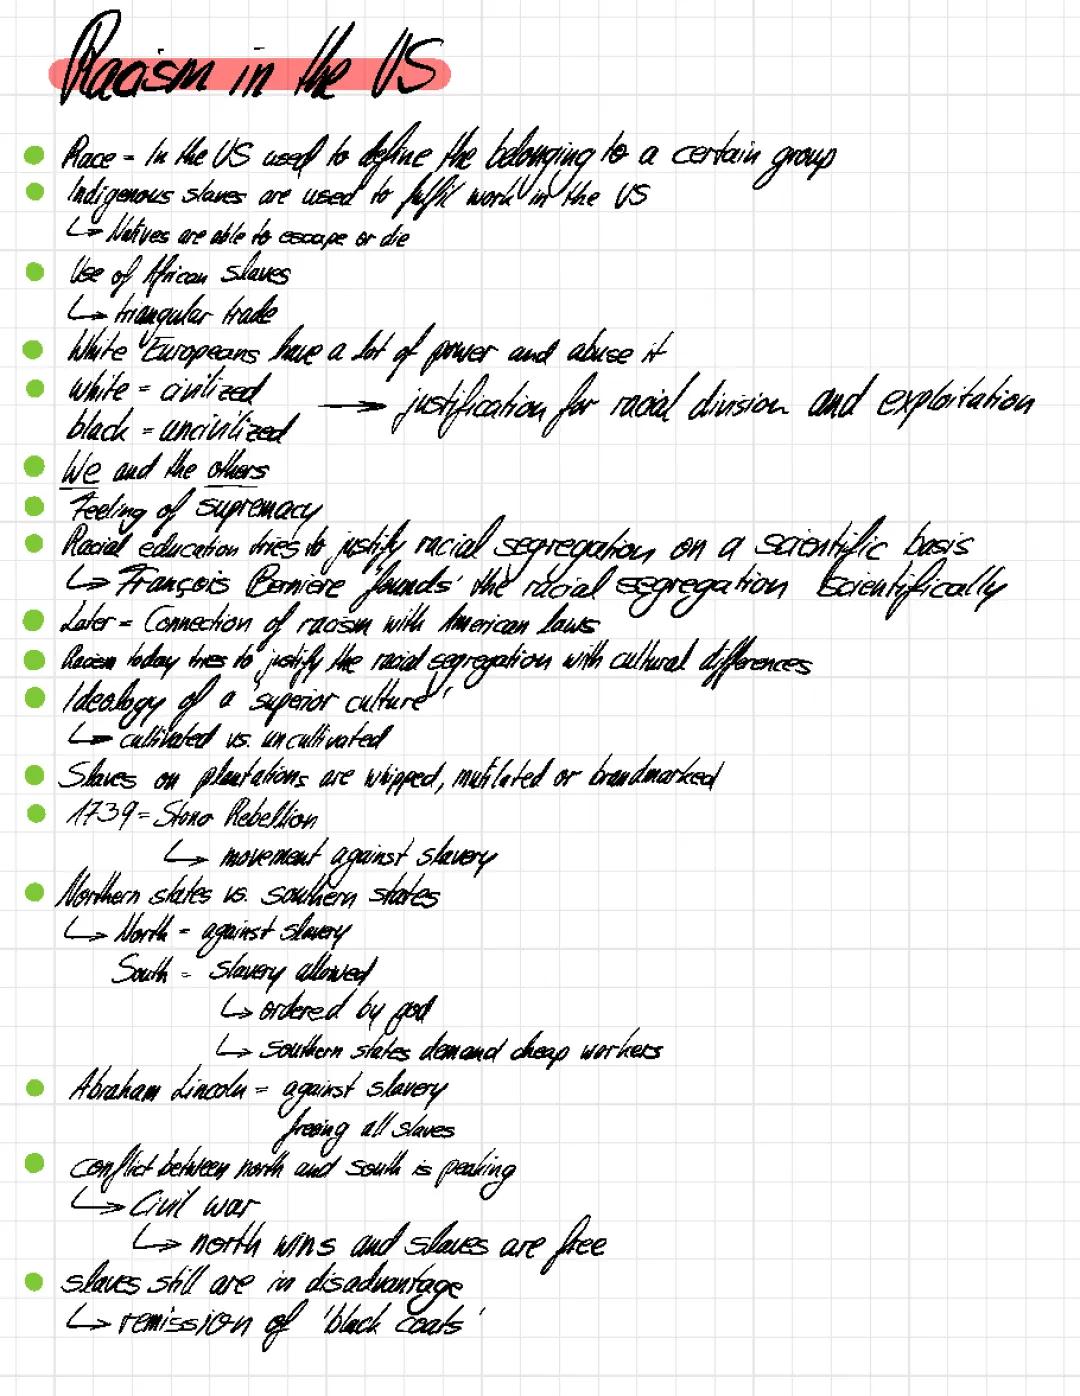 Racism in the US
Race = In the US used to define the belonging to a certain group
Indigenous slaves are used to fulfil work in the US
↳ Natives are able to escape or die
Use of African slaves
↳ triangular trade
White Europeans have a lot of power and abuse it
white = civilized → justification for racial division and exploitation
black = uncivilized
We and the others
Feeling of supremacy
Racial education tries to justify racial segregation on a scientific basis
↳ François Berniere 'founds' the racial segregation scientifically
Later = Connection of racism with American laws
Racism today tries to justify the racial segregation with cultural differences
Ideology of a 'superior culture'
↳ cultivated vs. uncultivated
Slaves on plantations are whipped, mutilated or brandmarked
1739 = Stono Rebellion
↳ movement against slavery
Northern states vs. southern states
↳ North = against slavery
South = slavery allowed
↳ ordered by god
↳ Southern states demand cheap workers
Abraham Lincoln = against slavery
freeing all slaves
conflict between north and south is peaking
↳ Civil war
↳ north wins and slaves are free
slaves still are in disadvantage
↳ remission of 'black coats'